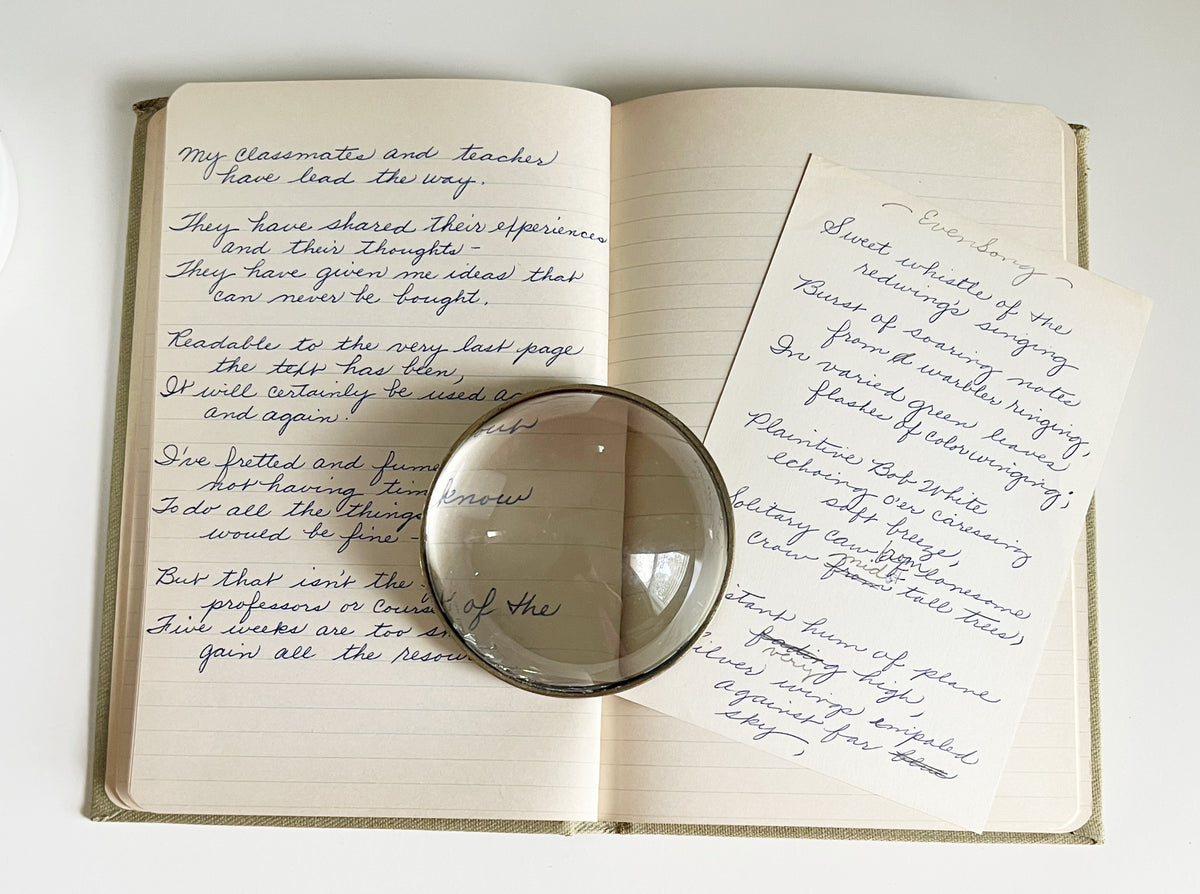 My classmates and teacher
have lead the way.
They have shared their experiences
and their thoughts –
They have given me ideas that
can never be bought.
Readable to the very last page
the text has been,
It will certainly be used
and again.
I've fretted and fume
out
not having tim
know
To do all the things
would be fine –
But that isn't the
professors or cours
of the
Five weeks are too
gain all the resou
~ EvenSong ~
Sweet whistle of the
redwing's singing
Burst of soaring notes
from a warbler ringing,
In varied green leaves
flashes of color winging;
Plaintive Bob White
echoing o'er caressing
soft breeze,
Solitary caw of lonesome
crow from midst tall trees,
stant hum of plane
fading very high,
ilver wings empaled
against far blue
sky,